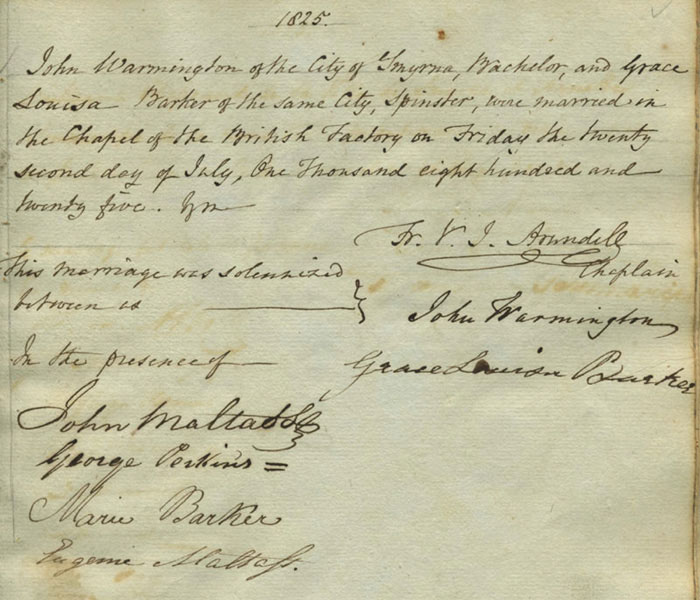 1825.
John Warmington of the City of Smyrna, Bachelor, and Grace
Louisa Barker of the same City, Spinster, were married in
the Chapel of the British Factory on Friday the twenty
second day of July, One thousand eight hundred and
twenty five. By me
Fr. V. J. Arundell
Chaplain
This marriage was solemnized
between us
John Warmington
In the presence of
Grace Louisa Barker
John Maltass
George Perkins =
Marie Barker
Eugenie Maltass.